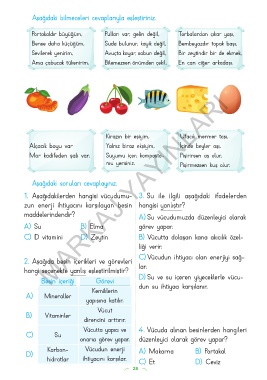 Aşağıdaki bilmeceleri cevaplarıyla eşleştiriniz.
Portakaldır büyüğüm,
Bense daha küçüğüm,
Sevilerek yenirim,
Ama çabucak tükenirim.
Pulları var gelin değil,
Suda bulunur, kayık değil,
Avuçta kayar, sabun değil,
Bilemezsen önümden çekil.
Tarlalardan çıkar yaşı,
Bembeyazdır topak başı,
Bir zeytindir bir de ekmek,
En can ciğer arkadaşı.
Alçacık boylu var
Mor kadifeden şalı var.
Kirazın bir eşiyim,
Yalnız biraz ekşiyim,
Suyumu için komposto-
mu yersiniz.
Ufacık mermer taşı,
İçinde beyler aşı,
Pişirirsen aş olur,
Pişirmezsen kuş olur.
Aşağıdaki soruları cevaplayınız.
1. Aşağıdakilerden hangisi vücudumu-
zun enerji ihtiyacını karşılayan besin
maddelerindendir?
A) Su B) Elma
C) D vitamini D) Zeytin
2. Aşağıda besin içerikleri ve görevleri
hangi seçenekte yanlış eşleştirilmiştir?
Besin içeriği Görevi
A) Mineraller Kemiklerin
yapısına katılır.
B) Vitaminler Vücut
direncini arttırır.
C) Su Vücutta yapıcı ve
onarıcı görev yapar.
D) Karbon-
hidratlar Vücudun enerji
ihtiyacını karşılar.
3. Su ile ilgili aşağıdaki ifadelerden
hangisi yanlıştır?
A) Su vücudumuzda düzenleyici olarak
görev yapar.
B) Vücutta dolaşan kana akıcılık özel-
liği verir.
C) Vücudun ihtiyacı olan enerjiyi sağ-
lar.
D) Su ve su içeren yiyeceklerle vücu-
dun su ihtiyacı karşılanır.
4. Vücuda alınan besinlerden hangileri
düzenleyici olarak görev yapar?
A) Makarna B) Portakal
C) Et D) Ceviz